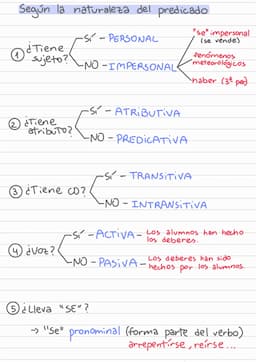 Según la naturaleza del predicado
① ¿Tiene sujeto?
SÍ - PERSONAL
NO - IMPERSONAL
"se" impersonal
(se vende)
fenómenos
meteorológicos
haber (3ª ps)
② ¿Tiene atributo?
SÍ - ATRIBUTIVA
NO - PREDICATIVA
③ ¿Tiene CD?
SÍ - TRANSITIVA
NO - INTRANSITIVA
④ ¿Voz?
SÍ - ACTIVA - Los alumnos han hecho
los deberes.
NO - PASIVA - Los deberes han sido
hechos por los alumnos.
⑤ ¿Lleva "SE"?
→ "se" pronominal (forma parte del verbo)
arrepentirse, reírse...